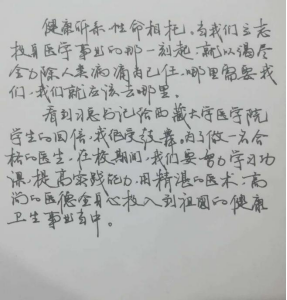 健康所系,性命相托。当我们立志
投身医学事业的那一刻起,就以竭尽
全力除人类病痛为己任,哪里需要我
们,我们就应该去哪里。
看到习总书记给西藏大学医学院
学生的回信,我倍受鼓舞。为了做一名合
格的医生,在校期间,我们要努力学习功
课,提高实践能力,用精湛的医术,高
尚的医德全身心投入到祖国的健康
卫生事业当中。